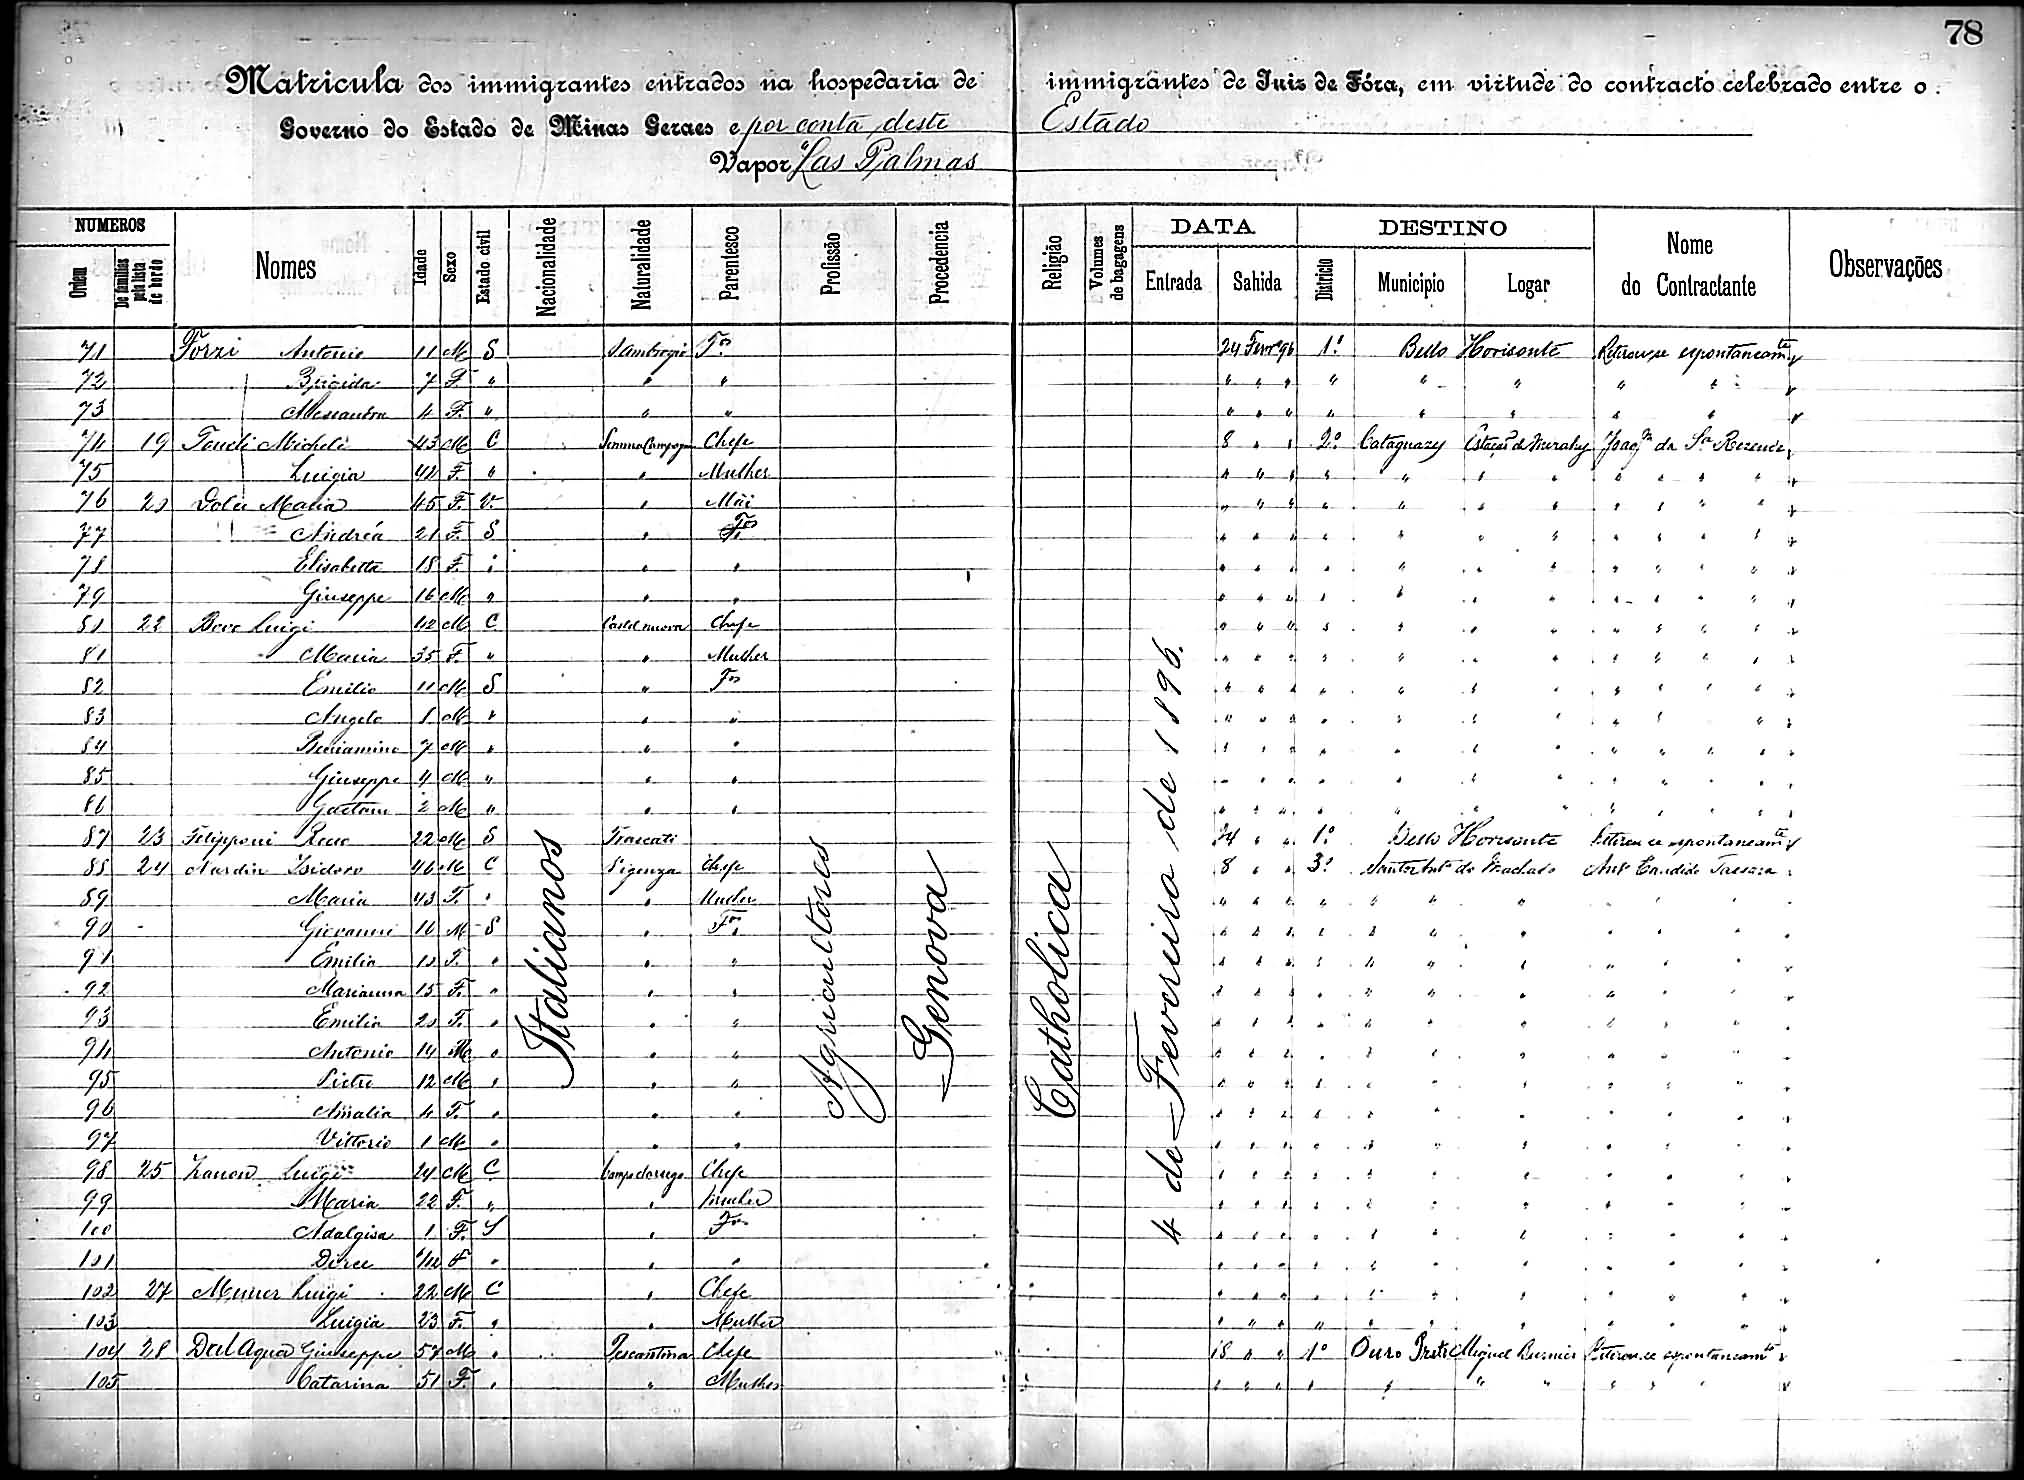 78
Matricula dos immigrantes entrados na hospedaria de immigrantes de Juiz de Fóra, em virtude do contracto celebrado entre o
Governo do Estado de Minas Geraes e por conta deste Estado
Vapor "Las Palmas
NUMEROS
Ordem
De familias pela lista de bordo
Nomes
Idade
Sexo
Estado civil
Nacionalidade
Naturalidade
Parentesco
Profissão
Procedencia
Religião
Volumes de bagagens
DATA
Entrada
Sahida
DESTINO
Districto
Municipio
Logar
Nome do Contractante
Observações
Italianos
Agricultores
Genova
Catholica
4 de Fevereiro de 1896.
71 Forzi Antonio 11 M S S Ambrogio Fos 24 Fevro 96 1º Bello Horisonte Retirou-se espontaneamte
72 Brigida 7 F " " " " " " " " " " "
73 Alessandra 4 F. " " " " " " " " " " "
74 19 Micheli 43 M C Chefe 8 " " 2º Cataguazy Estação de Mirahy Joaqm da Sa Rezende
75 Luigia 42 F. " " Mulher " " " " " " " " " " "
76 20 Dolci Maria 45 F. V. " Mãi " " " " " " " " " " "
77 Andréa 21 F. S " Fos " " " " " " " " " " "
78 Elisabetta 18 F. " " " " " " " " " " " " " "
79 Giuseppe 16 M " " " " " " " " " " " " " "
80 22 Bovo Luigi 42 M C. Castelnuovo Chefe " " " " " " " " " " "
81 Maria 35 F. " " Mulher " " " " " " " " " " "
82 Emilio 11 M S " Fos " " " " " " " " " " "
83 Angelo 1 M " " " " " " " " " " " " "
84 Beniamino 7 M " " " " " " " " " " " " " "
85 Giuseppe 4 M " " " " " " " " " " " " "
86 Gaetano 2 M " " " " " " " " " " " " " "
87 23 Filipponi 22 M S Frascati 24 " " 1º Bello Horisonte Retirou-se espontaneamte
88 24 Nardin Isidoro 46 M C Chefe 8 " " 3º Santo Antº do Machado Antº Candido
89 Maria 43 F. " " Mulher " " " " " " " " " "
90 Giovanni 16 M S " Fos " " " " " " " " " "
91 Emilia F. " " " " " " " " " " " " "
92 Marianna 15 F. " " " " " " " " " " " " "
93 Emilia 20 F. " " " " " " " " " " " " "
94 Antonio 14 M " " " " " " " " " " " " "
95 Pietro 12 M " " " " " " " " " " " " "
96 Amalia 4 F. " " " " " " " " " " " " "
97 Vittorio 1 M " " " " " " " " " " " " "
98 25 Zanon Luigi 24 M C Chefe " " " " " " " " " "
99 Maria 22 F. " " Mulher " " " " " " " " " "
100 Adalgisa 1 F. S " Fos " " " " " " " " " "
101 Dirce F " " " " " " " " " " " " "
102 27 Luigi 22 M C " Chefe " " " " " " " " " "
103 Luigia 23 F. " " Mulher " " " " " " " " " "
104 28 Dal Aqua Giuseppe 57 M " Pescantina Chefe 18 " " 1º Ouro Preto Miguel Burnier Retirou-se espontaneamte
105 Catarina 51 F. " " Mulher " " " " " " " " " "